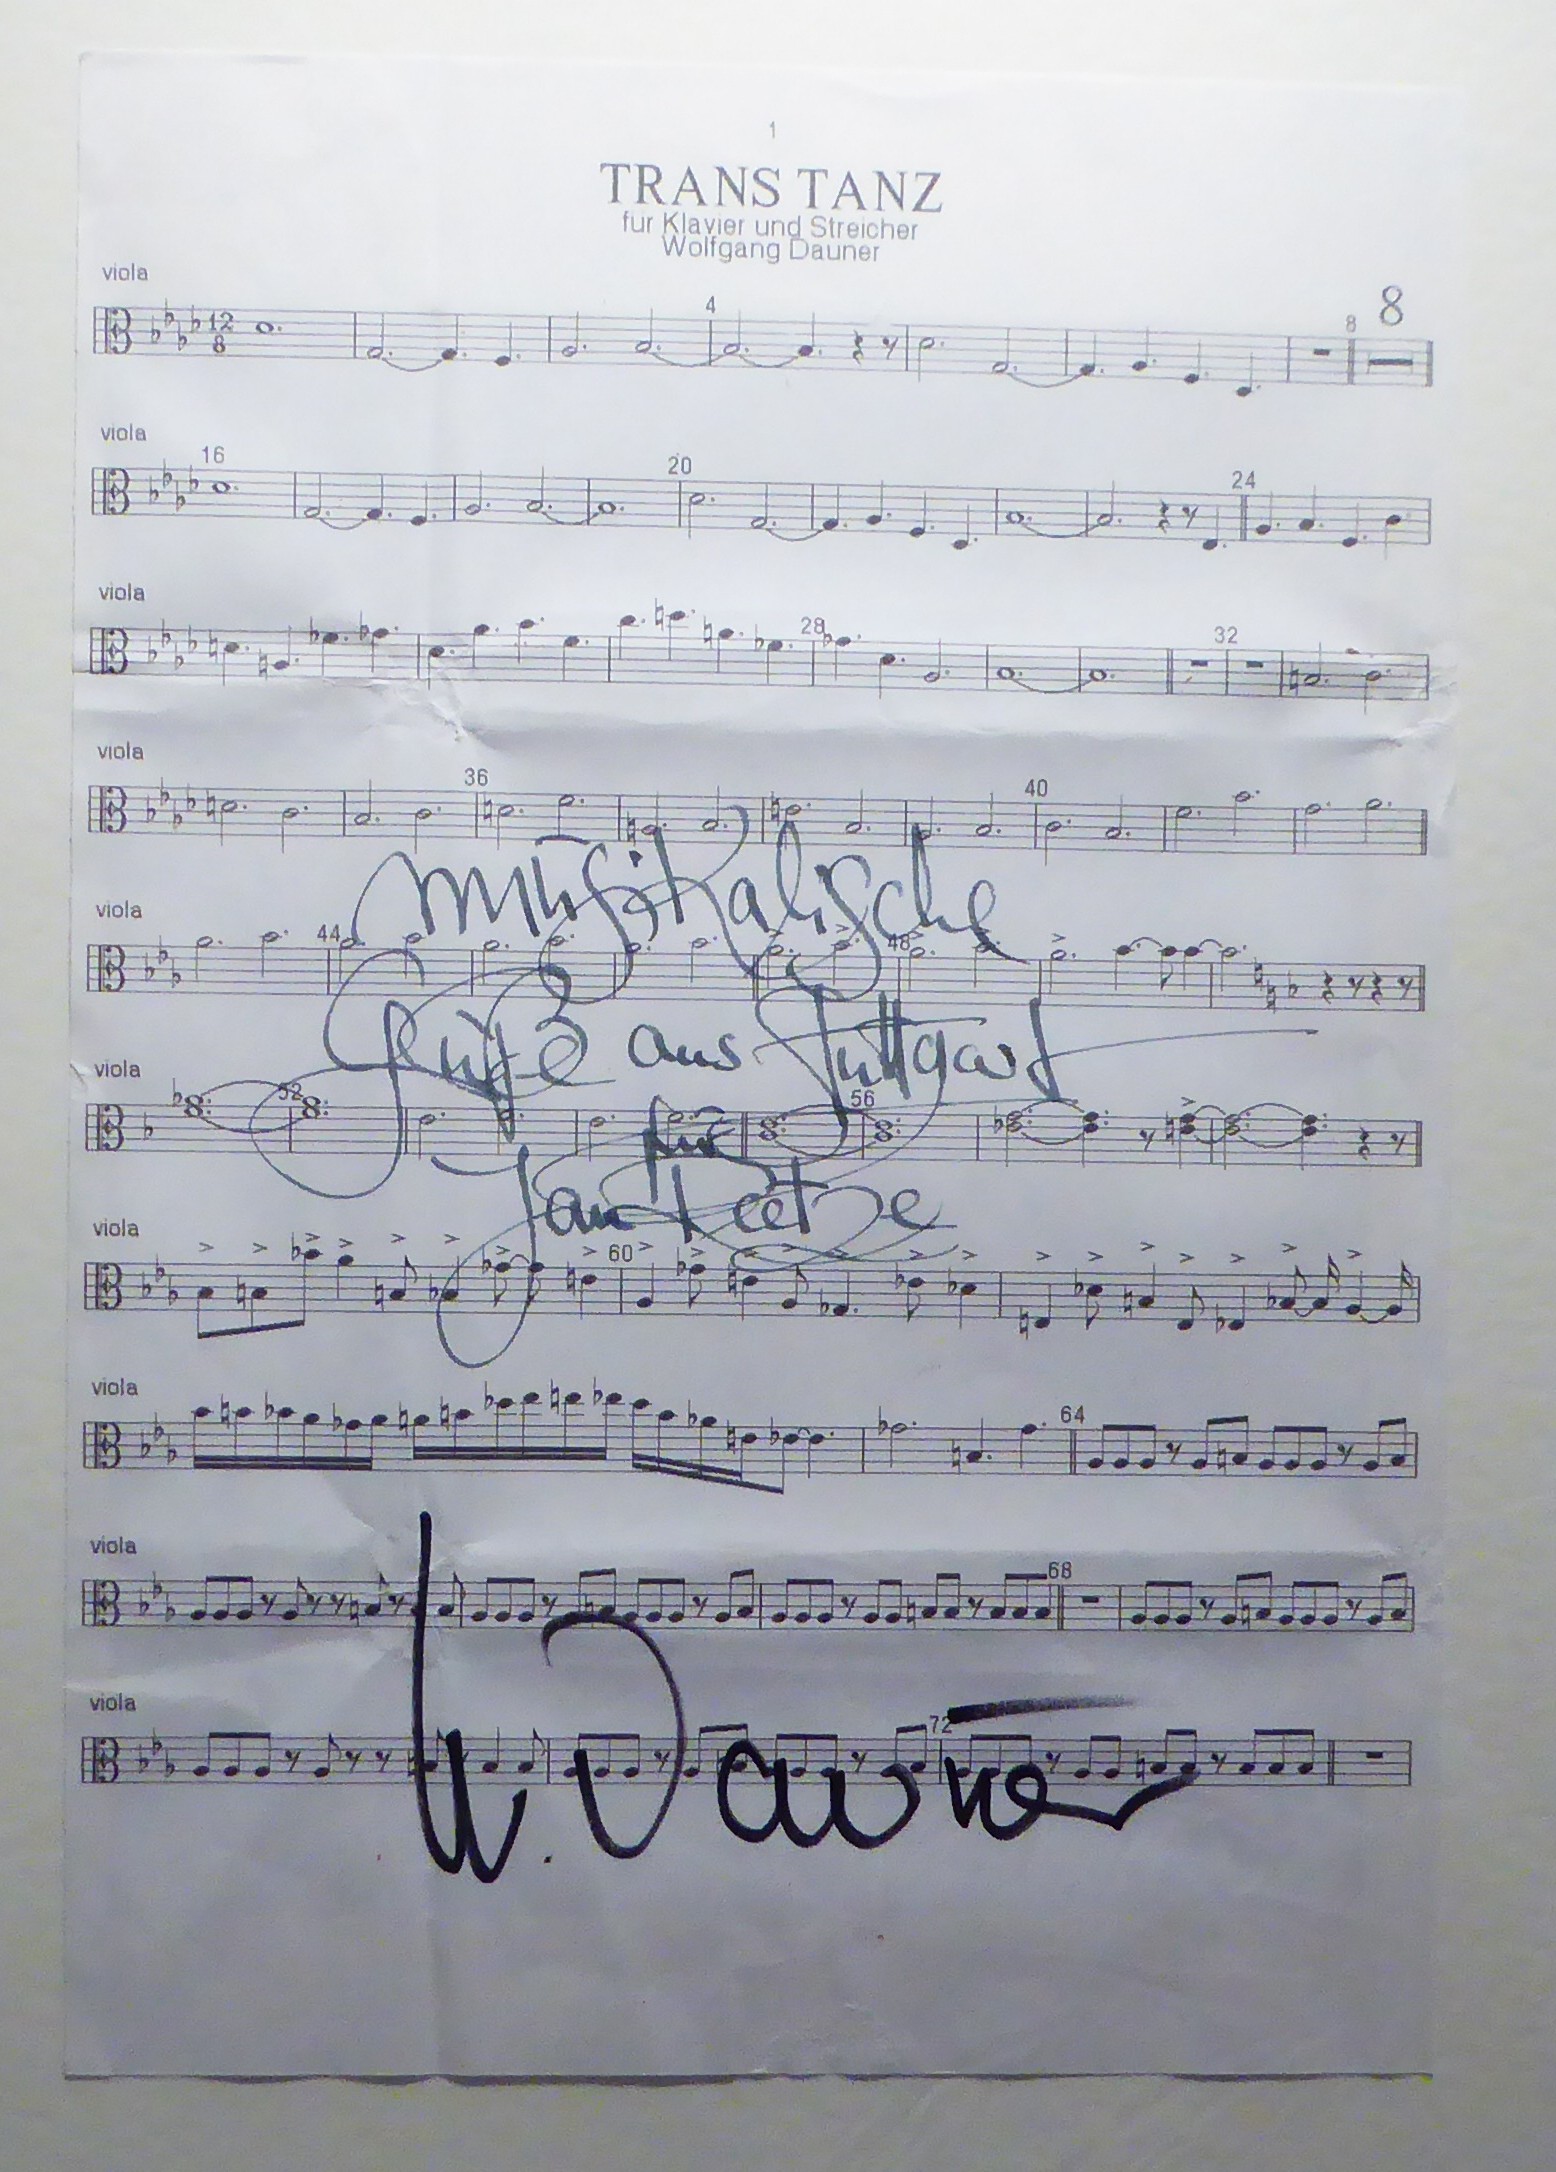 1
TRANS TANZ
für Klavier und Streicher
Wolfgang Dauner
viola
12
8
4
8
8
viola
16
20
24
viola
28
32
viola
36
40
viola
44
48
viola
52
56
viola
60
viola
64
viola
68
viola
72
Musikalische
Grüße aus Stuttgart
für
Jan Reetze
W. Dauner